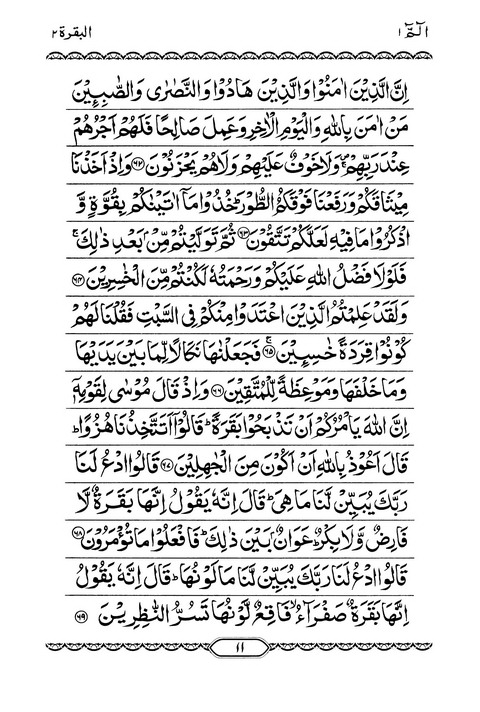 الٓمّٓ ١
البقرة ٢
اِنَّ الَّذِیْنَ اٰمَنُوْا وَالَّذِیْنَ هَادُوْا وَالنَّصٰرٰى وَالصّٰبِـِٕیْنَ
مَنْ اٰمَنَ بِاللّٰهِ وَالْیَوْمِ الْاٰخِرِ وَعَمِلَ صَالِحًا فَلَهُمْ اَجْرُهُمْ
عِنْدَ رَبِّهِمْ ۚ وَلَا خَوْفٌ عَلَیْهِمْ وَلَا هُمْ یَحْزَنُوْنَ ﴿۶۲﴾ وَاِذْ اَخَذْنَا
مِیْثَاقَكُمْ وَرَفَعْنَا فَوْقَكُمُ الطُّوْرَ ؕ خُذُوْا مَاۤ اٰتَیْنٰكُمْ بِقُوَّةٍ وَّ
اذْكُرُوْا مَا فِیْهِ لَعَلَّكُمْ تَتَّقُوْنَ ﴿۶۳﴾ ثُمَّ تَوَلَّیْتُمْ مِّنْۢ بَعْدِ ذٰلِكَ ۚ
فَلَوْلَا فَضْلُ اللّٰهِ عَلَیْكُمْ وَرَحْمَتُهٗ لَكُنْتُمْ مِّنَ الْخٰسِرِیْنَ ﴿۶۴﴾
وَلَقَدْ عَلِمْتُمُ الَّذِیْنَ اعْتَدَوْا مِنْكُمْ فِی السَّبْتِ فَقُلْنَا لَهُمْ
كُوْنُوْا قِرَدَةً خٰسِـِٕیْنَ ﴿۶۵﴾ ۚ فَجَعَلْنٰهَا نَكَالًا لِّمَا بَیْنَ یَدَیْهَا
وَمَا خَلْفَهَا وَمَوْعِظَةً لِّلْمُتَّقِیْنَ ﴿۶۶﴾ وَاِذْ قَالَ مُوْسٰى لِقَوْمِهٖۤ
اِنَّ اللّٰهَ یَاْمُرُكُمْ اَنْ تَذْبَحُوْا بَقَرَةً ؕ قَالُوْۤا اَتَتَّخِذُنَا هُزُوًا ؕ
قَالَ اَعُوْذُ بِاللّٰهِ اَنْ اَكُوْنَ مِنَ الْجٰهِلِیْنَ ﴿۶۷﴾ قَالُوا ادْعُ لَنَا
رَبَّكَ یُبَیِّنْ لَّنَا مَا هِیَ ؕ قَالَ اِنَّهٗ یَقُوْلُ اِنَّهَا بَقَرَةٌ لَّا
فَارِضٌ وَّلَا بِكْرٌ ؕ عَوَانٌۢ بَیْنَ ذٰلِكَ ؕ فَافْعَلُوْا مَا تُؤْمَرُوْنَ ﴿۶۸﴾
قَالُوا ادْعُ لَنَا رَبَّكَ یُبَیِّنْ لَّنَا مَا لَوْنُهَا ؕ قَالَ اِنَّهٗ یَقُوْلُ
اِنَّهَا بَقَرَةٌ صَفْرَآءُ ۙ فَاقِعٌ لَّوْنُهَا تَسُرُّ النّٰظِرِیْنَ ﴿۶۹﴾
١١